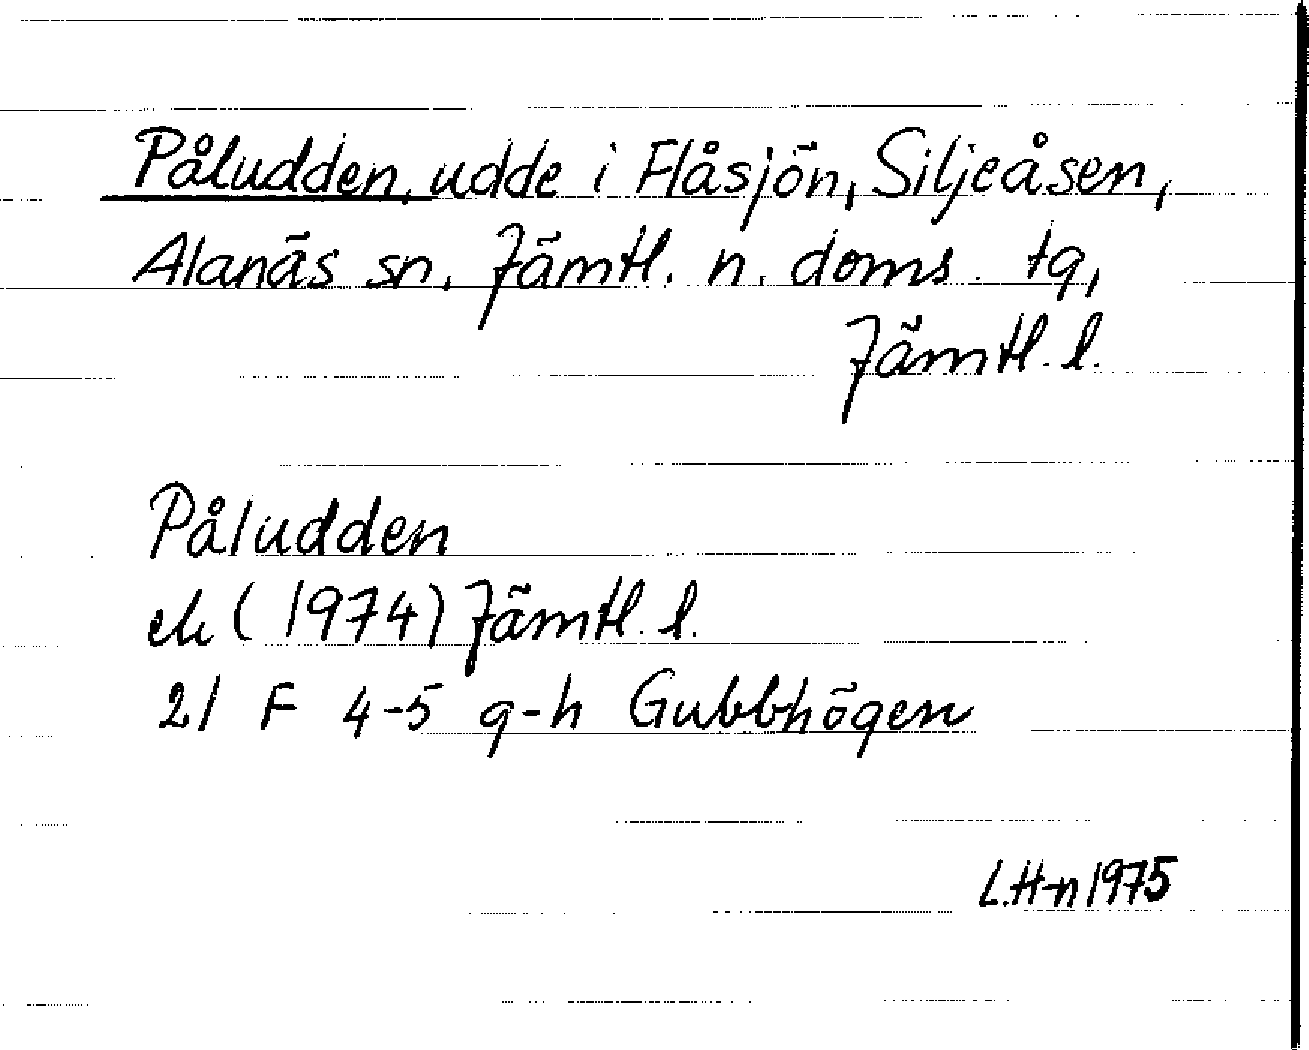 Påludden, udde i Flåsjön, Siljeåsen,
Alanäs sn, Jämtl. n. doms. tg,
Jämtl. l.
Påludden
ek (1974) Jämtl. l.
21 F 4-5 g-h Gubbhögen
L.H-n 1975